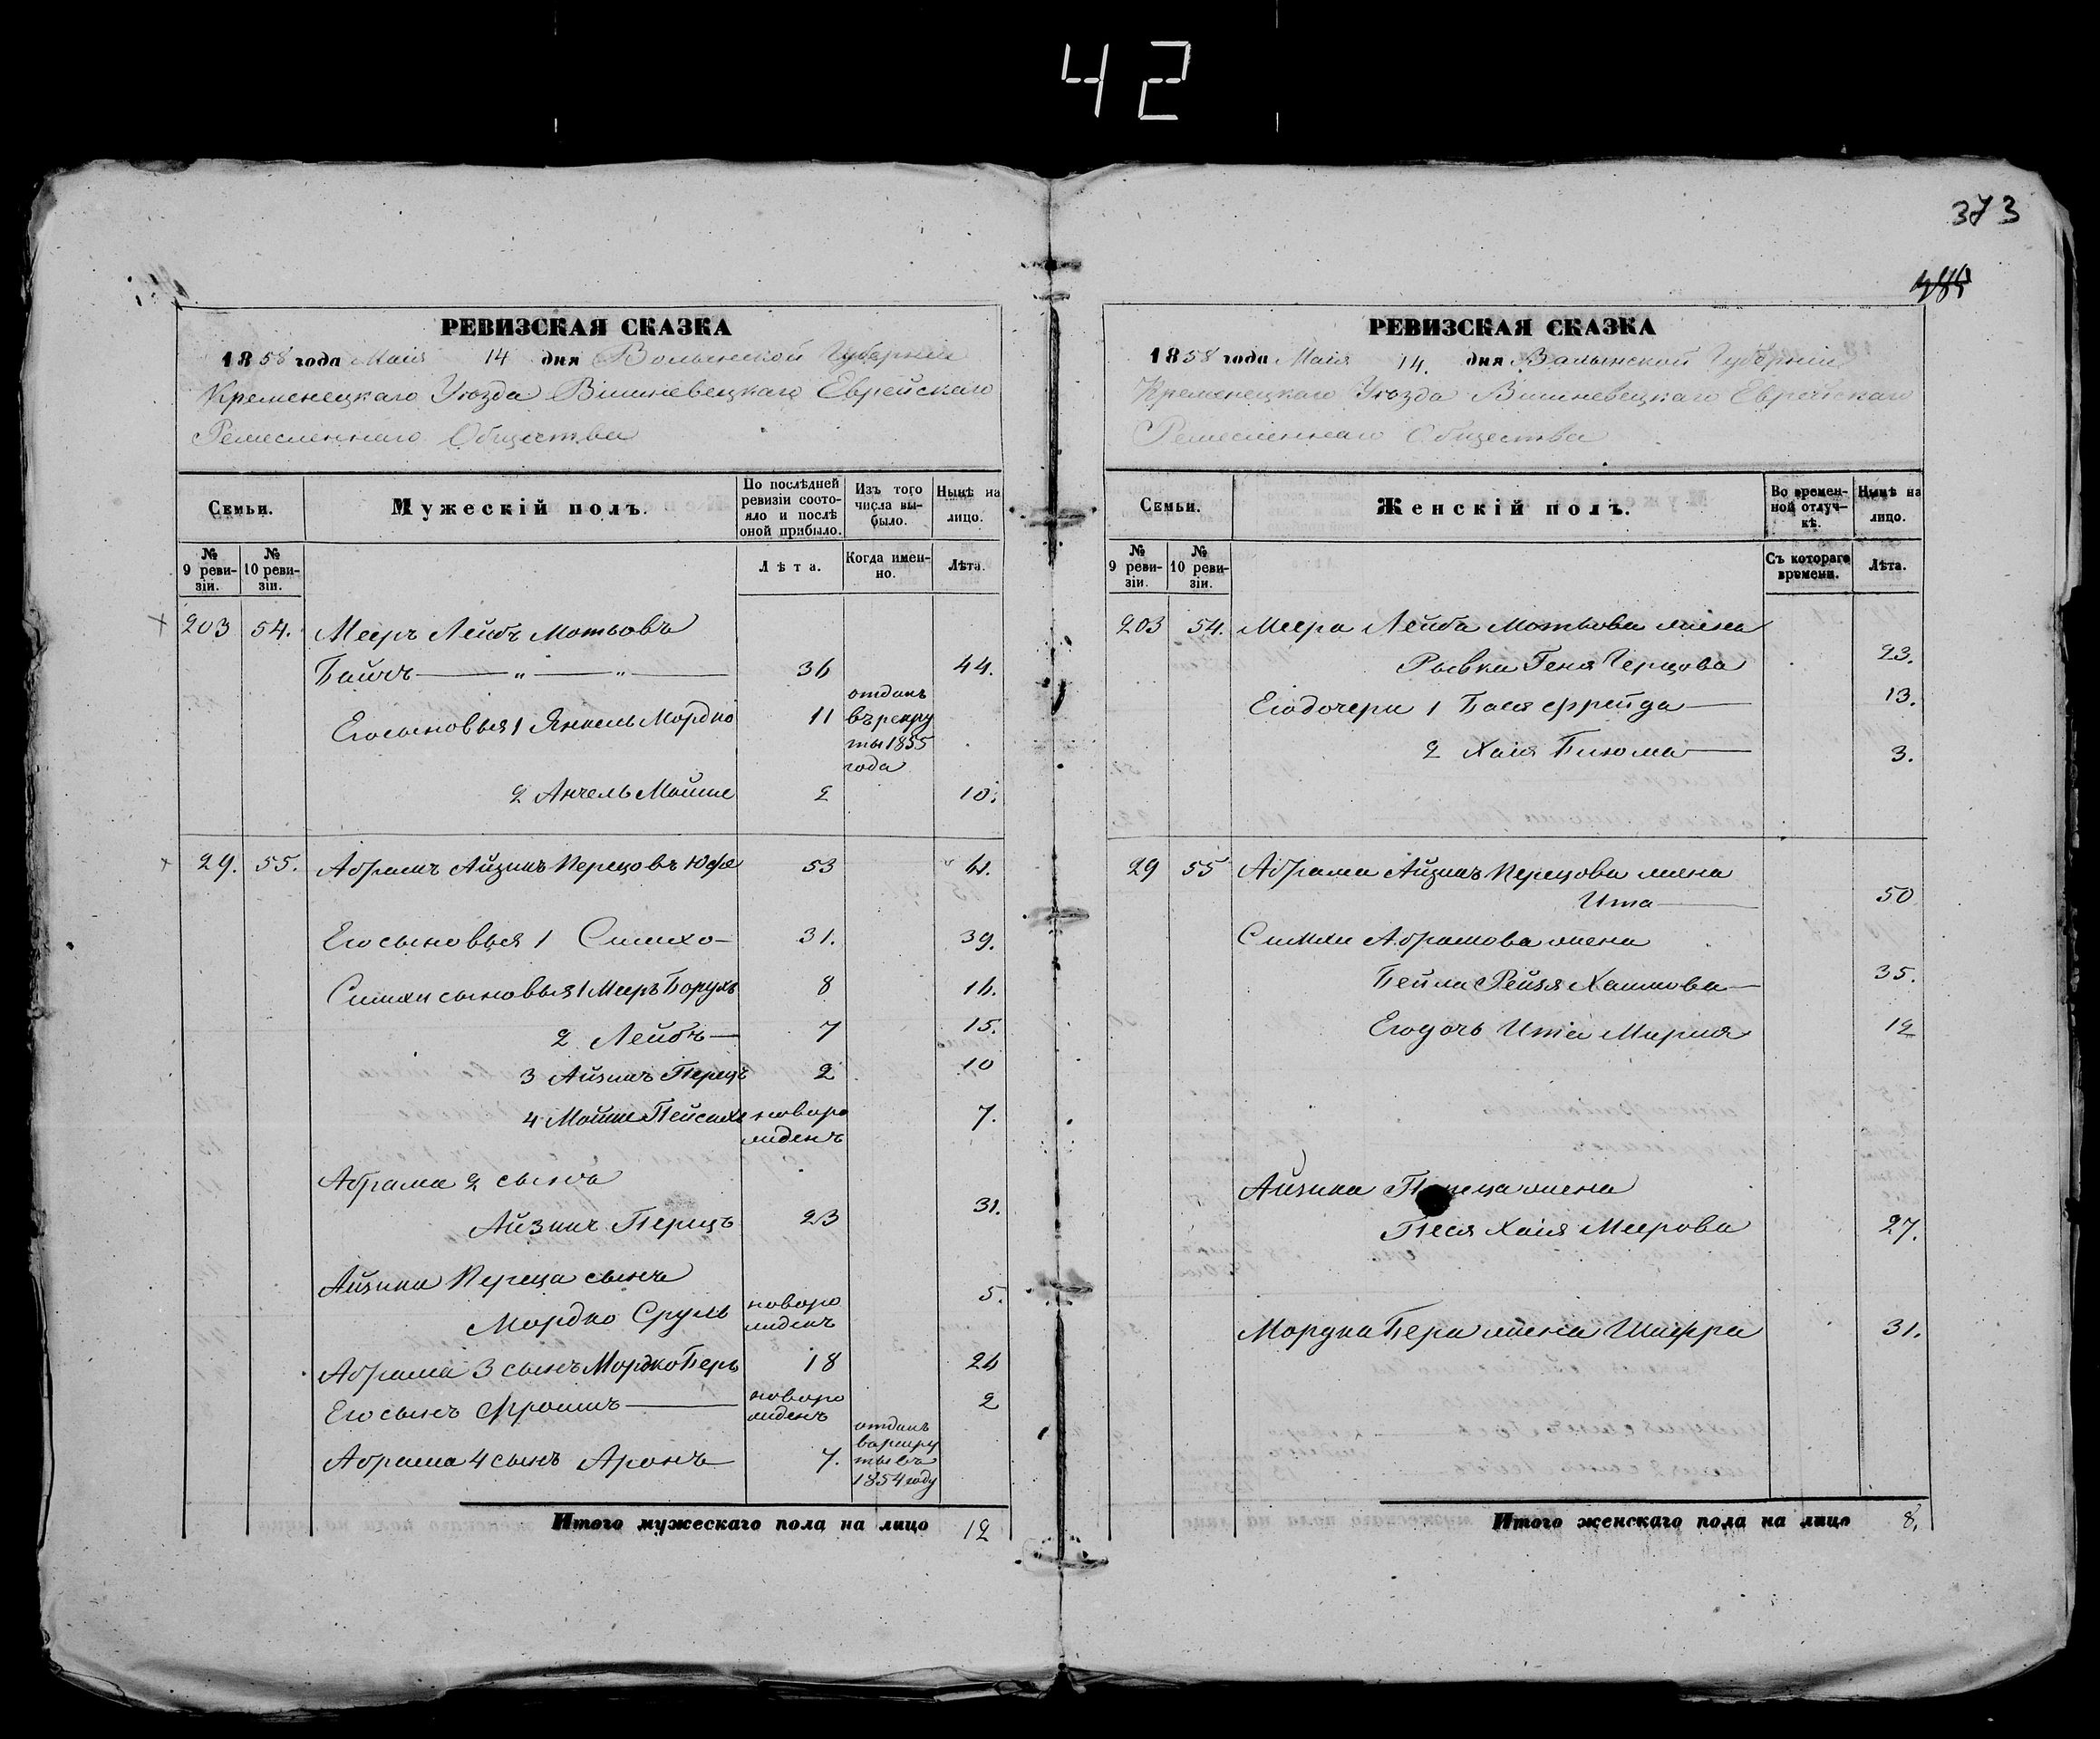 42
373
РЕВИЗСКАЯ СКАЗКА
1858 года Маія 14 дня Волынской Губерніи
Кременецкаго Уѣзда Вишневецкаго Еврейскаго
Ремесленнаго Общества
Семьи. Мужескій полъ. По послѣдней ревизіи состояло и послѣ оной прибыло. Изъ того числа выбыло. Нынѣ на лицо.
№ 9 ревизіи. № 10 ревизіи. Лѣта. Когда именно. Лѣта.
203 54. Мееръ Лейбъ Мотьовъ
36 44.
Его сыновья 1 Янкель Мордко 11 отданъ въ рекруты 1855 года
2 Анчель Мошко 2 10.
29. 55. Абрамъ Айзикъ Перецовъ Юфе 53 61.
Его сыновья 1 Симхо 31. 39.
Симхи сыновья 1 Мееръ Борухъ 8 16.
2 Лейбъ 7 15.
3 Айзикъ Перецъ 2 10
4 Мошко Пейсахъ новорожденъ 7.
Абрама 2 сынъ
Айзикъ Перецъ 23 31.
Айзика Переца сынъ
Мордко Сруль новорожденъ 5.
Абрама 3 сынъ Мордко Беръ 18 26
Его сынъ Фроимъ новорожденъ 2
Абрама 4 сынъ Аронъ 7. отданъ в рекруты въ 1854 году
Итого мужескаго пола на лицо 12
РЕВИЗСКАЯ СКАЗКА
1858 года Маія 14. дня Волынской Губерніи
Кременецкаго Уѣзда Вишневецкаго Еврейскаго
Ремесленнаго Общества
Семьи. Женскій полъ. Во временной отлучкѣ. Нынѣ на лицо.
№ 9 ревизіи. № 10 ревизіи. Съ котораго времени. Лѣта.
203 54. Меера Лейба Мотьова жена
Рывка Геня Герцова 23.
Его дочери 1 Бася Фрейда 13.
2 Хаія 3.
29 55 Абрама Айзика Перецова жена
Ита 50
Симхи Абрамова жена
Бейла Рейзя Хаимова 35.
Его дочь Ита Мирія 12
Айзика Переца жена
Песя Хаія Меерова 27.
Мордка Бера жена Шифра 31.
Итого женскаго пола на лицо 8.